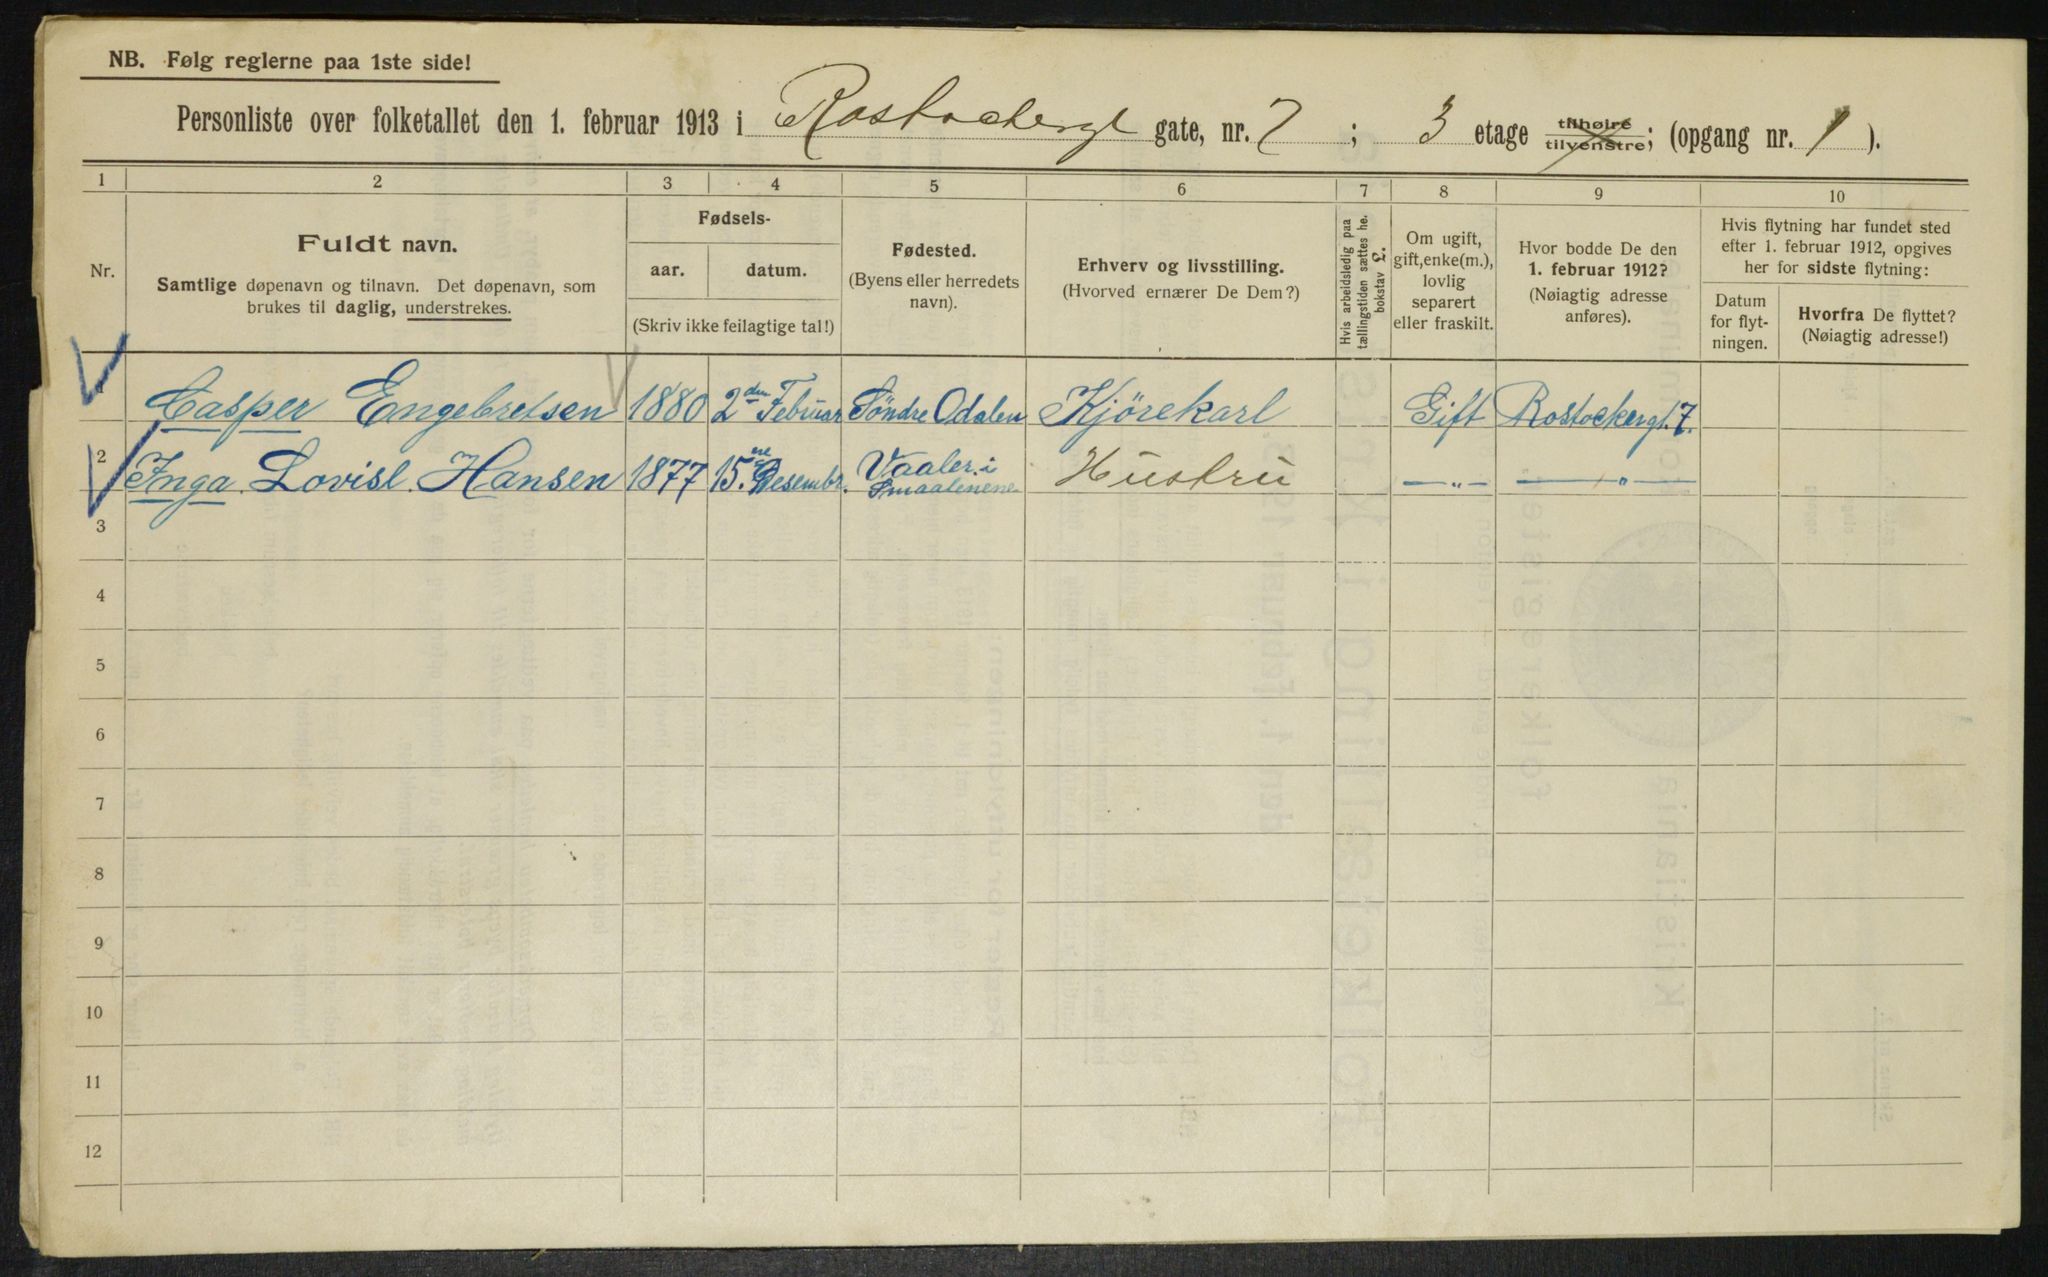 NB. Følg reglerne paa 1ste side!
Personliste over folketallet den 1. februar 1913 i Rostockergt gate, nr. 7 ; 3 etage tilhøire tilvenstre; (opgang nr. 1 ).
1 2 3 4 5 6 7 8 9 10
Nr.
Fuldt navn.
Samtlige døpenavn og tilnavn. Det døpenavn, som
brukes til daglig, understrekes.
Fødsels-
aar. datum.
(Skriv ikke feilagtige tal!)
Fødested.
(Byens eller herredets
navn).
Erhverv og livsstilling.
(Hvorved ernærer De Dem?)
Hvis arbeidsledig paa
tællingstiden sættes he.
bokstav L.
Om ugift,
gift, enke(m.),
lovlig
separert
eller fraskilt.
Hvor bodde De den
1. februar 1912?
(Nøiagtig adresse
anføres).
Hvis flytning har fundet sted
efter 1. februar 1912, opgives
her for sidste flytning:
Datum
for flyt-
ningen.
Hvorfra De flyttet?
(Nøiagtig adresse!)
Casper Engebretsen 1880 2den Februar Söndre Odalen Kjörekarl Gift Rostockergt. 7.
2 Inga Lovisl. Hansen 1877 15. Desembr. Vaaler i Smaalenene Hustru —„— —„—
3
4
5
6
7
8
9
10
11
12